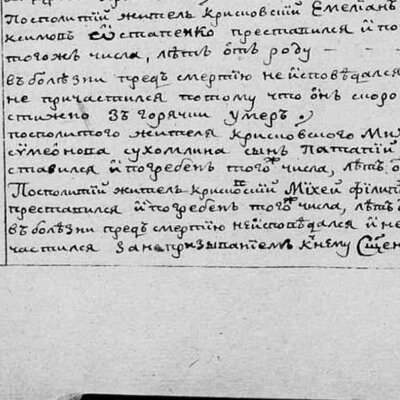 Посполитій житель криковскій Емеліанъ
остапенко преставился й по
тогожъ числа, лѣтъ ѿтъ роду - - -
въ болѣзни предъ смертію не йсповѣдался
не причастился потому что онъ скоро
стижно зъ горячки умеръ
посполитого жителя криковского Ми
сѷмеонова сухомлина сынъ Патапій
ставился й погребенъ того числа, лѣтъ
Посполитій житель криковскій Міхей філип
преставился й погребенъ того числа, лѣтъ
въ болѣзни предъ смертію не йсповѣдался й не
частился за непризыванїемъ к нему Сщен